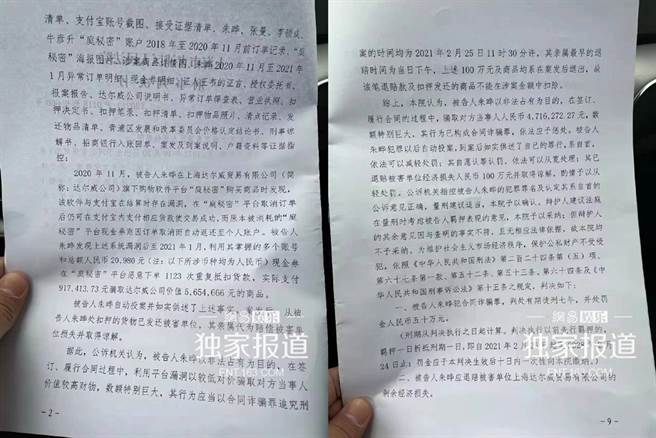 清单、支付宝账号截图、接受证据清单、朱晔、张曼、李锁成、
牛彦升"庭秘密"账户 2018 年至 2020 年 11 月前订单记录、"庭
秘密"海报图片、涉案商品详情图、朱晔 2020 年 11 月至 2021 年
1 月异常订单明细、现金券明细、证人证书的证言、授权委托书、
报案报告、达尔威公司说明书、异常订单筛查表、营业执照、扣
押决定书、扣押笔录、扣押清单、扣押物品照片、清点记录、发
还物品清单、青浦区发展和改革委员会价格认定结论书、刑事谅
解书、招商银行入账回单、案发及到案说明、户籍资料等证据指
控：
2020 年 11 月，被告人朱晔在上海达尔威贸易有限公司（简
称：达尔威公司）旗下购物软件平台"庭秘密"购买商品时发现，
该软件与支付宝在结算时存在漏洞，在"庭秘密"平台取消订单
后仍可在支付宝内支付相应货款使交易成功，而原本被消耗的"庭
秘密"平台现金券则因订单取消而自动返还至个人账户。被告人
朱晔发现上述系统漏洞后至 2021 年 1 月，利用其掌握的多个账号
和总额人民币 20,980 元（注：以下所涉币种均为人民币）现金券
在"庭秘密"平台恶意下单 1123 次重复抵扣货款，实际支付
917,413.73 元骗取达尔威公司价值 5,654,666 元的商品。
被告人朱晔自动投案并如实供述了上述事实
被告人朱晔处扣押的货物已发还被害单位，其亲属代为赔偿被害单
位损失并取得谅解。
据此，公诉机关认为，被告人朱晔以非法占有为目的，在签
订、履行合同过程中，利用平台漏洞以较低对价骗取对方当事人
价值较高财物，数额特别巨大，其行为应当以合同诈骗罪追究刑
- 2 -
案的时间均为 2021 年 2 月 25 日 11 时 30 分许，其亲属最早的退
赔时间为当日下午，上述 100 万元及商品均系在案发后退出，故
该笔退赔款及扣押发还的商品不能在涉案金额中扣除。
综上，本院认为，被告人朱晔以非法占有为目的，在签订、
履行合同的过程中，骗取对方当事人人民币 4,716,272.27 元，数
额特别巨大，其行为已构成合同诈骗罪，依法应予惩处。被告人
朱晔犯罪以后自动投案，到案后如实供述了自己的罪行，系自首，
依法可以减轻处罚；其自愿认罪认罚，依法可以从宽处理；其已
退赔被害单位经济损失人民币 100 万元并取得谅解，酌情予以从
轻处罚。公诉机关指控被告人朱晔的犯罪罪名及认定其系自首的
公诉意见正确，量刑建议适当，本院予以确认。辩护人建议法庭
在量刑时考虑被告人羁押表现的意见，本院予以采纳；但辩护人
的其余意见因与查明的事实不符，且无相应法律依据，故本院均
不予采纳。为维护社会主义市场经济秩序，保护公私财产不受侵
犯，依照《中华人民共和国刑法》第二百二十四条第（五）项、
第六十七条第一款、第五十二条、第五十三条、第六十四条及《中
华人民共和国刑事诉讼法》第十五条之规定，判决如下：
一、被告人朱晔犯合同诈骗罪，判处有期徒刑七年，并处罚
金人民币五十万元。
（刑期从判决执行之日起计算。判决执行以前先行羁押的，
羁押一日折抵刑期一日，即自 2021 年 2 月
24 日止；罚金应于本判决生效后十日内一次性向本院缴纳。）
二、被告人朱晔应退赔被害单位上海达尔威贸易有限公司的
剩余经济损失。
- 9 -
网易娱乐
独家报道
ENT.163.COM
网易娱乐
独家报道
ENT.163.COM